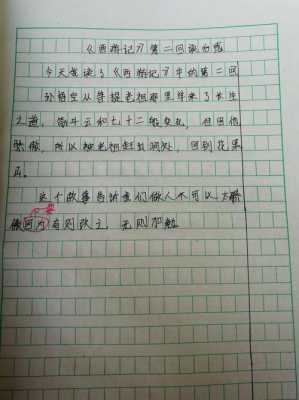 《西游记》第二回读后感
今天我读了《西游记》中的第二回
孙悟空从菩提老祖那里学来了长生
之道，筋斗云和七十二般变化，但因他
骄傲，所以被老祖赶出洞处，回到花果
山。
这个故事告诉我们做人不可以太骄
傲 有则改之，无则加勉